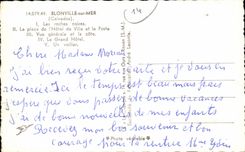 14511/41. BLONVILLE-sur-MER
(Calvados)
I. Les roches noires.
II. La place de l'Hôtel de Ville et la Poste
III. Vue générale et la côte.
IV. Le Grand Hôtel.
V. Un voilier.
14
Chère Madame
J'ai bien reçu votre carte et je vous en
remercie. Ici le temps est beau mais frais
j'espère que vous passez de bonnes vacances
J'ai de bonnes nouvelles de mes enfants
Recevez mon bon souvenir et bon
courage pour la rentrée Mme